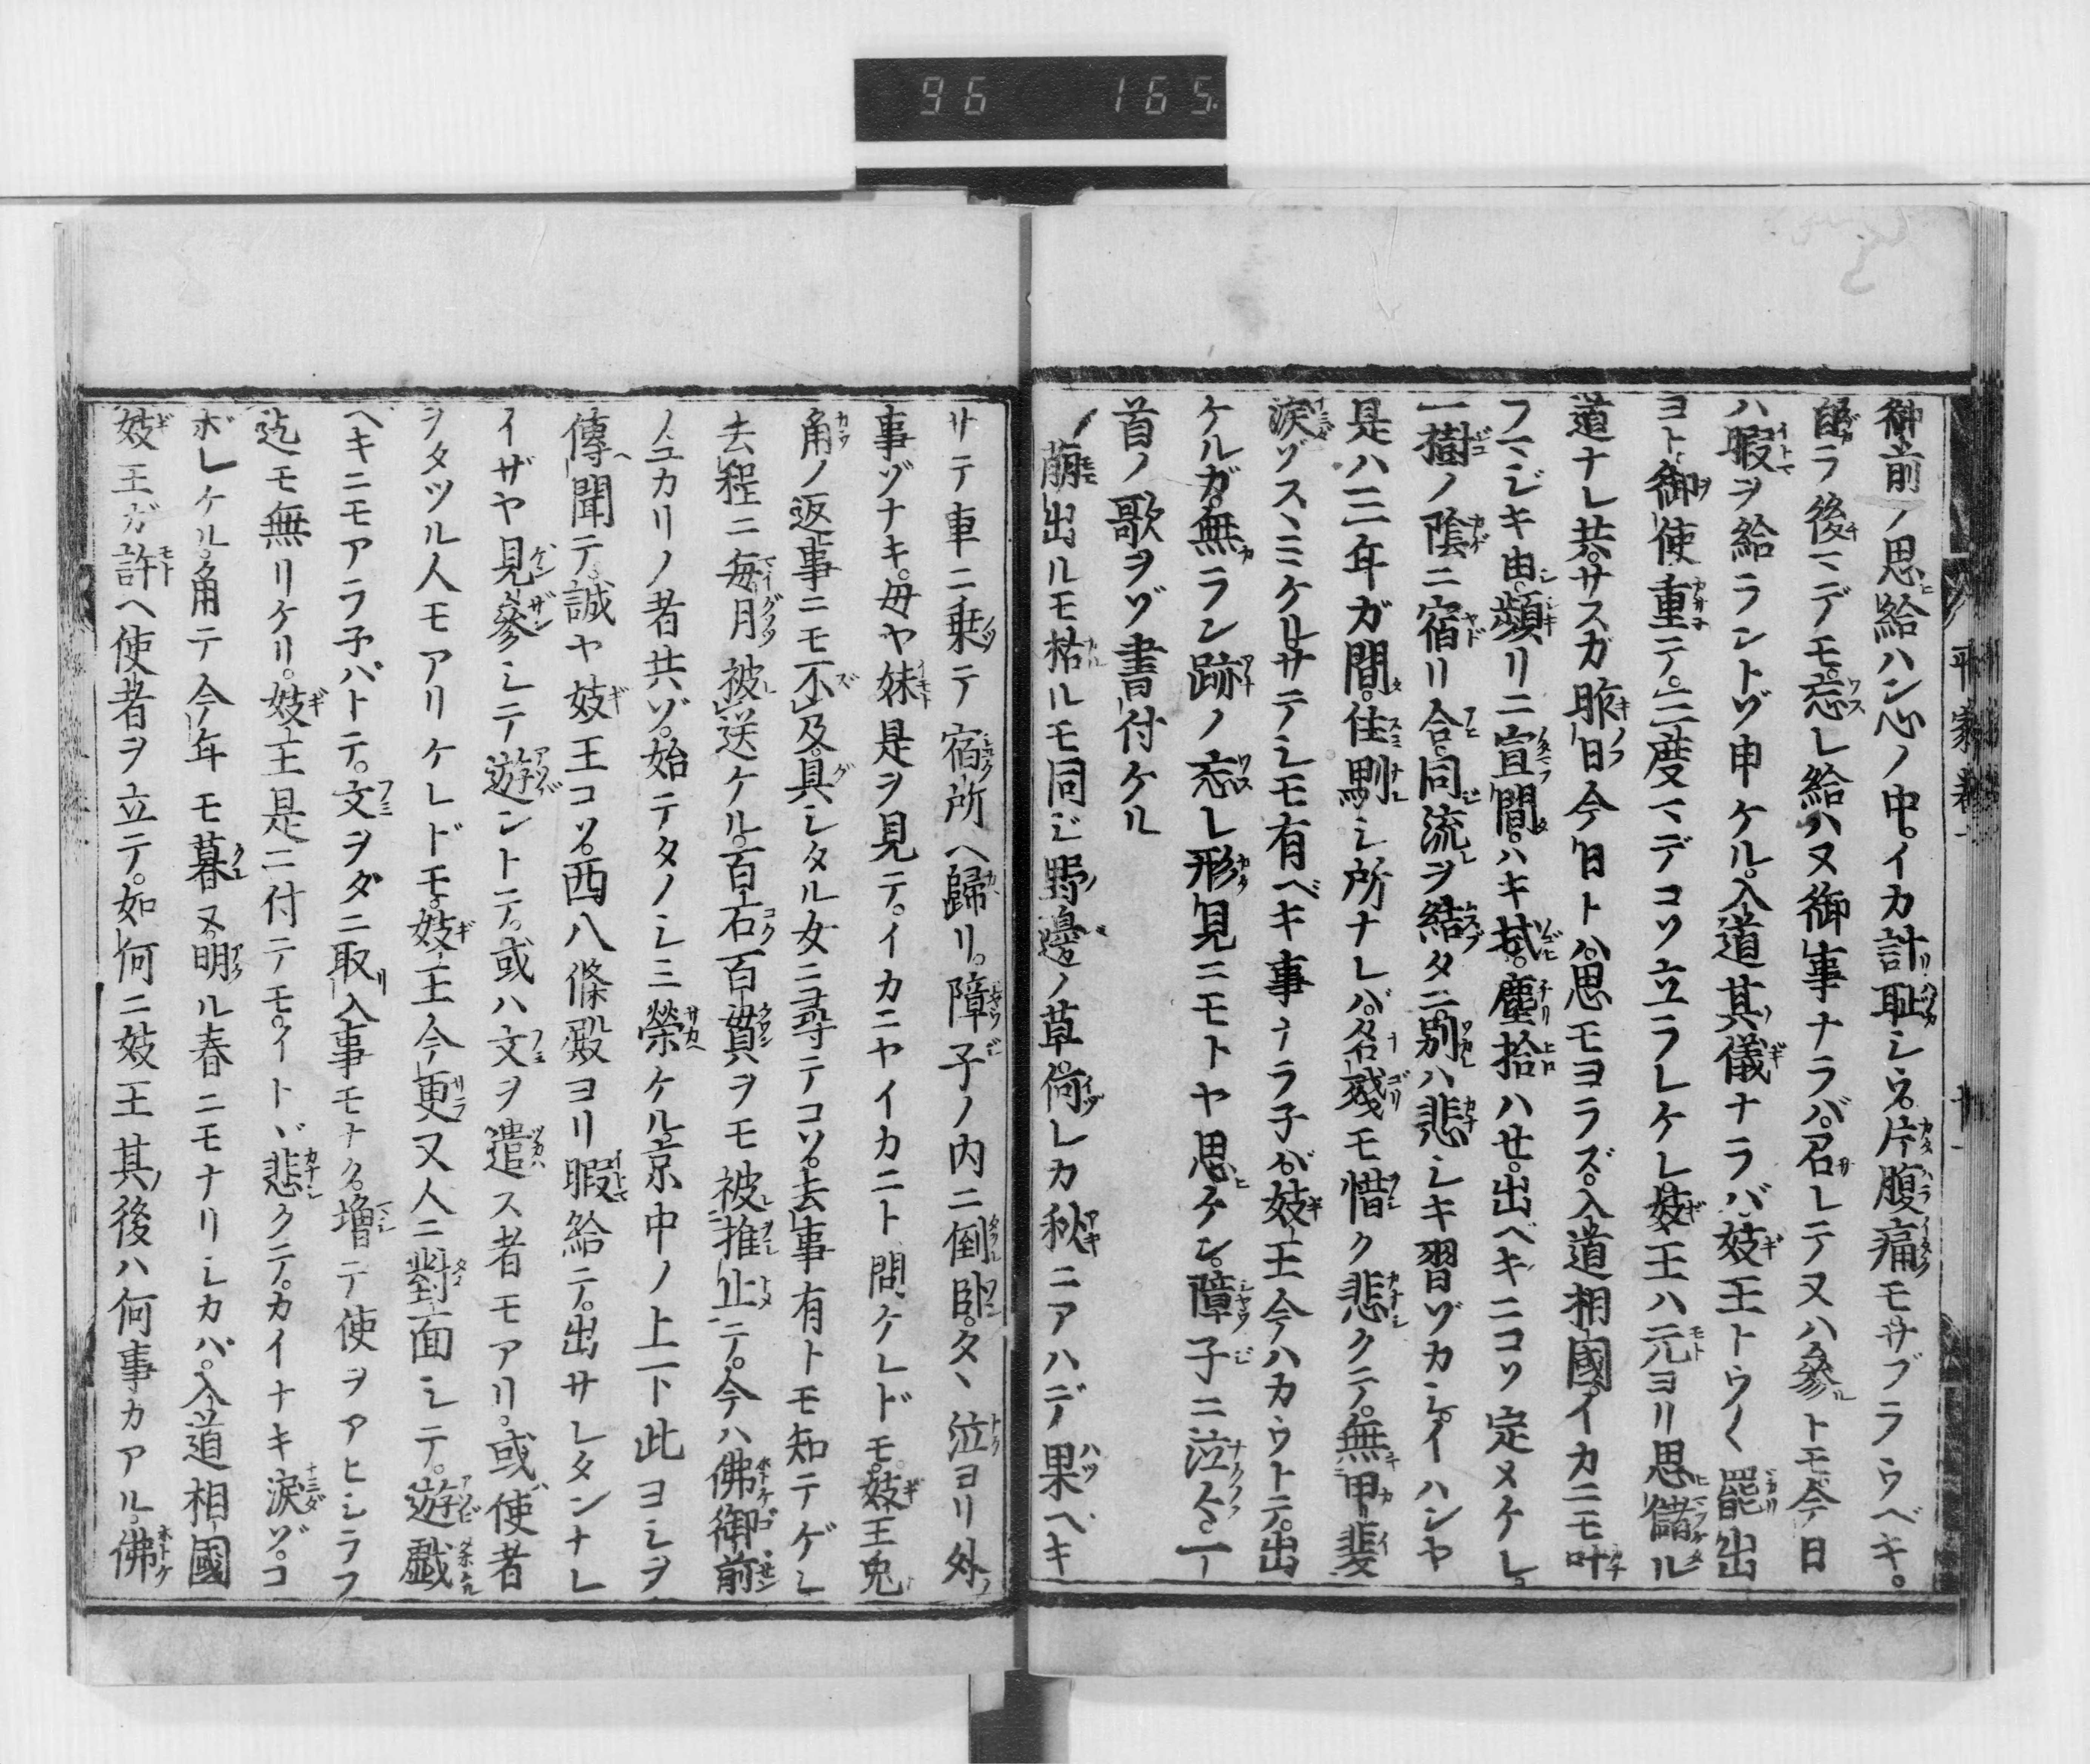 96 165
御前ノ思給ハン心ノ中。イカ計恥シウ片腹痛モサブラウベキ。
自ラ後マデモ。忘レ給ハヌ御事ナラバ。召レテ又ハ參トモ。今日
ハ暇ヲ給ラントゾ申ケル。入道其儀ナラバ妓王トウ〱罷出
ヨト。御使重テ。三度マデコソ立ラレケレ。妓王ハ元ヨリ思儲ル
道ナレ共。サスガ昨日今日トハ。思モヨラズ。入道相國。イカニモ叶
フマジキ由。頻リニ宣間。ハキ拭。塵拾ハセ。出ベキニコソ定メケレ。
一樹ノ陰ニ宿リ合。同流ヲ結タニ。別ハ悲シキ習ゾカシ。イハンヤ
是ハ三年ガ間。住馴シ所ナレバ。名殘モ惜ク悲クテ。無甲斐
涙ゾスヽミケル。サテシモ有ベキ事ナラ子バ。妓王今ハカウトテ。出
ケルガ。無ラン跡ノ忘レ形見ニモトヤ思ケン。障子ニ泣々。一
首ノ歌ヲゾ書付ケル
萠出ルモ枯ルモ同ジ野邊ノ草。何レカ秋ニアハデ果ベキ
平家巻一 十一
サテ車ニ乗テ宿所ヘ歸リ。障子ノ内ニ倒臥。タヽ泣ヨリ外ノ
事ゾナキ。母ヤ妹是ヲ見テ。イカニヤイカニト問ケレドモ。妓王兎
角ノ返事ニモ不及。具シタル女ニ尋テコソ。去事有トモ知テゲレ
去程ニ毎月被送ケル。百石百貫ヲモ被推止テ。今ハ佛御前
ノユカリノ者共ゾ。始テタノシミ榮ケル京中ノ上下此ヨシヲ
傳聞テ。誠ヤ妓王コソ。西八條殿ヨリ暇給テ。出サレタンナレ
イザヤ見參シテ遊ントテ。或ハ文ヲ遣ス者モアリ。或使者
ヲタツル人モアリケレドモ。妓王今更又人ニ對面シテ。遊戯
ヘキニモアラ子バトテ。文ヲダニ取入事モナク。増テ使ヲアヒシラフ
迄モ無リケリ。妓王是ニ付テモ。イトヾ悲クテ。カイナキ涙ゾ。コ
ボレケル。角テ今年モ暮ヌ。明ル春ニモナリシカバ。入道相國
妓王ガ許ヘ使者ヲ立テ。如何ニ妓王其後ハ何事カアル。佛